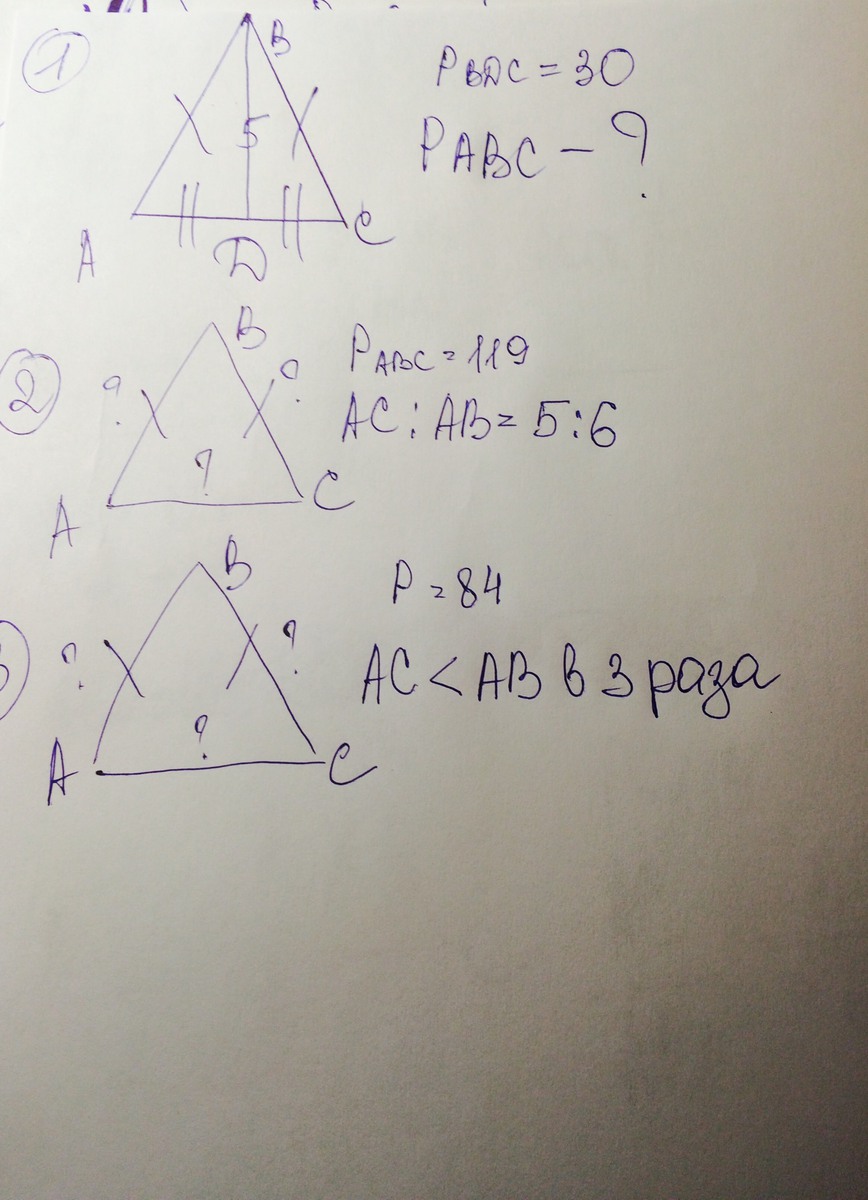 1
B
5
A
D
C
P BDC = 30
P ABC - ?
2
B
? ?
?
A
C
P ABC = 119
AC : AB = 5:6
B
? ?
?
A
C
P = 84
AC < AB в 3 раза